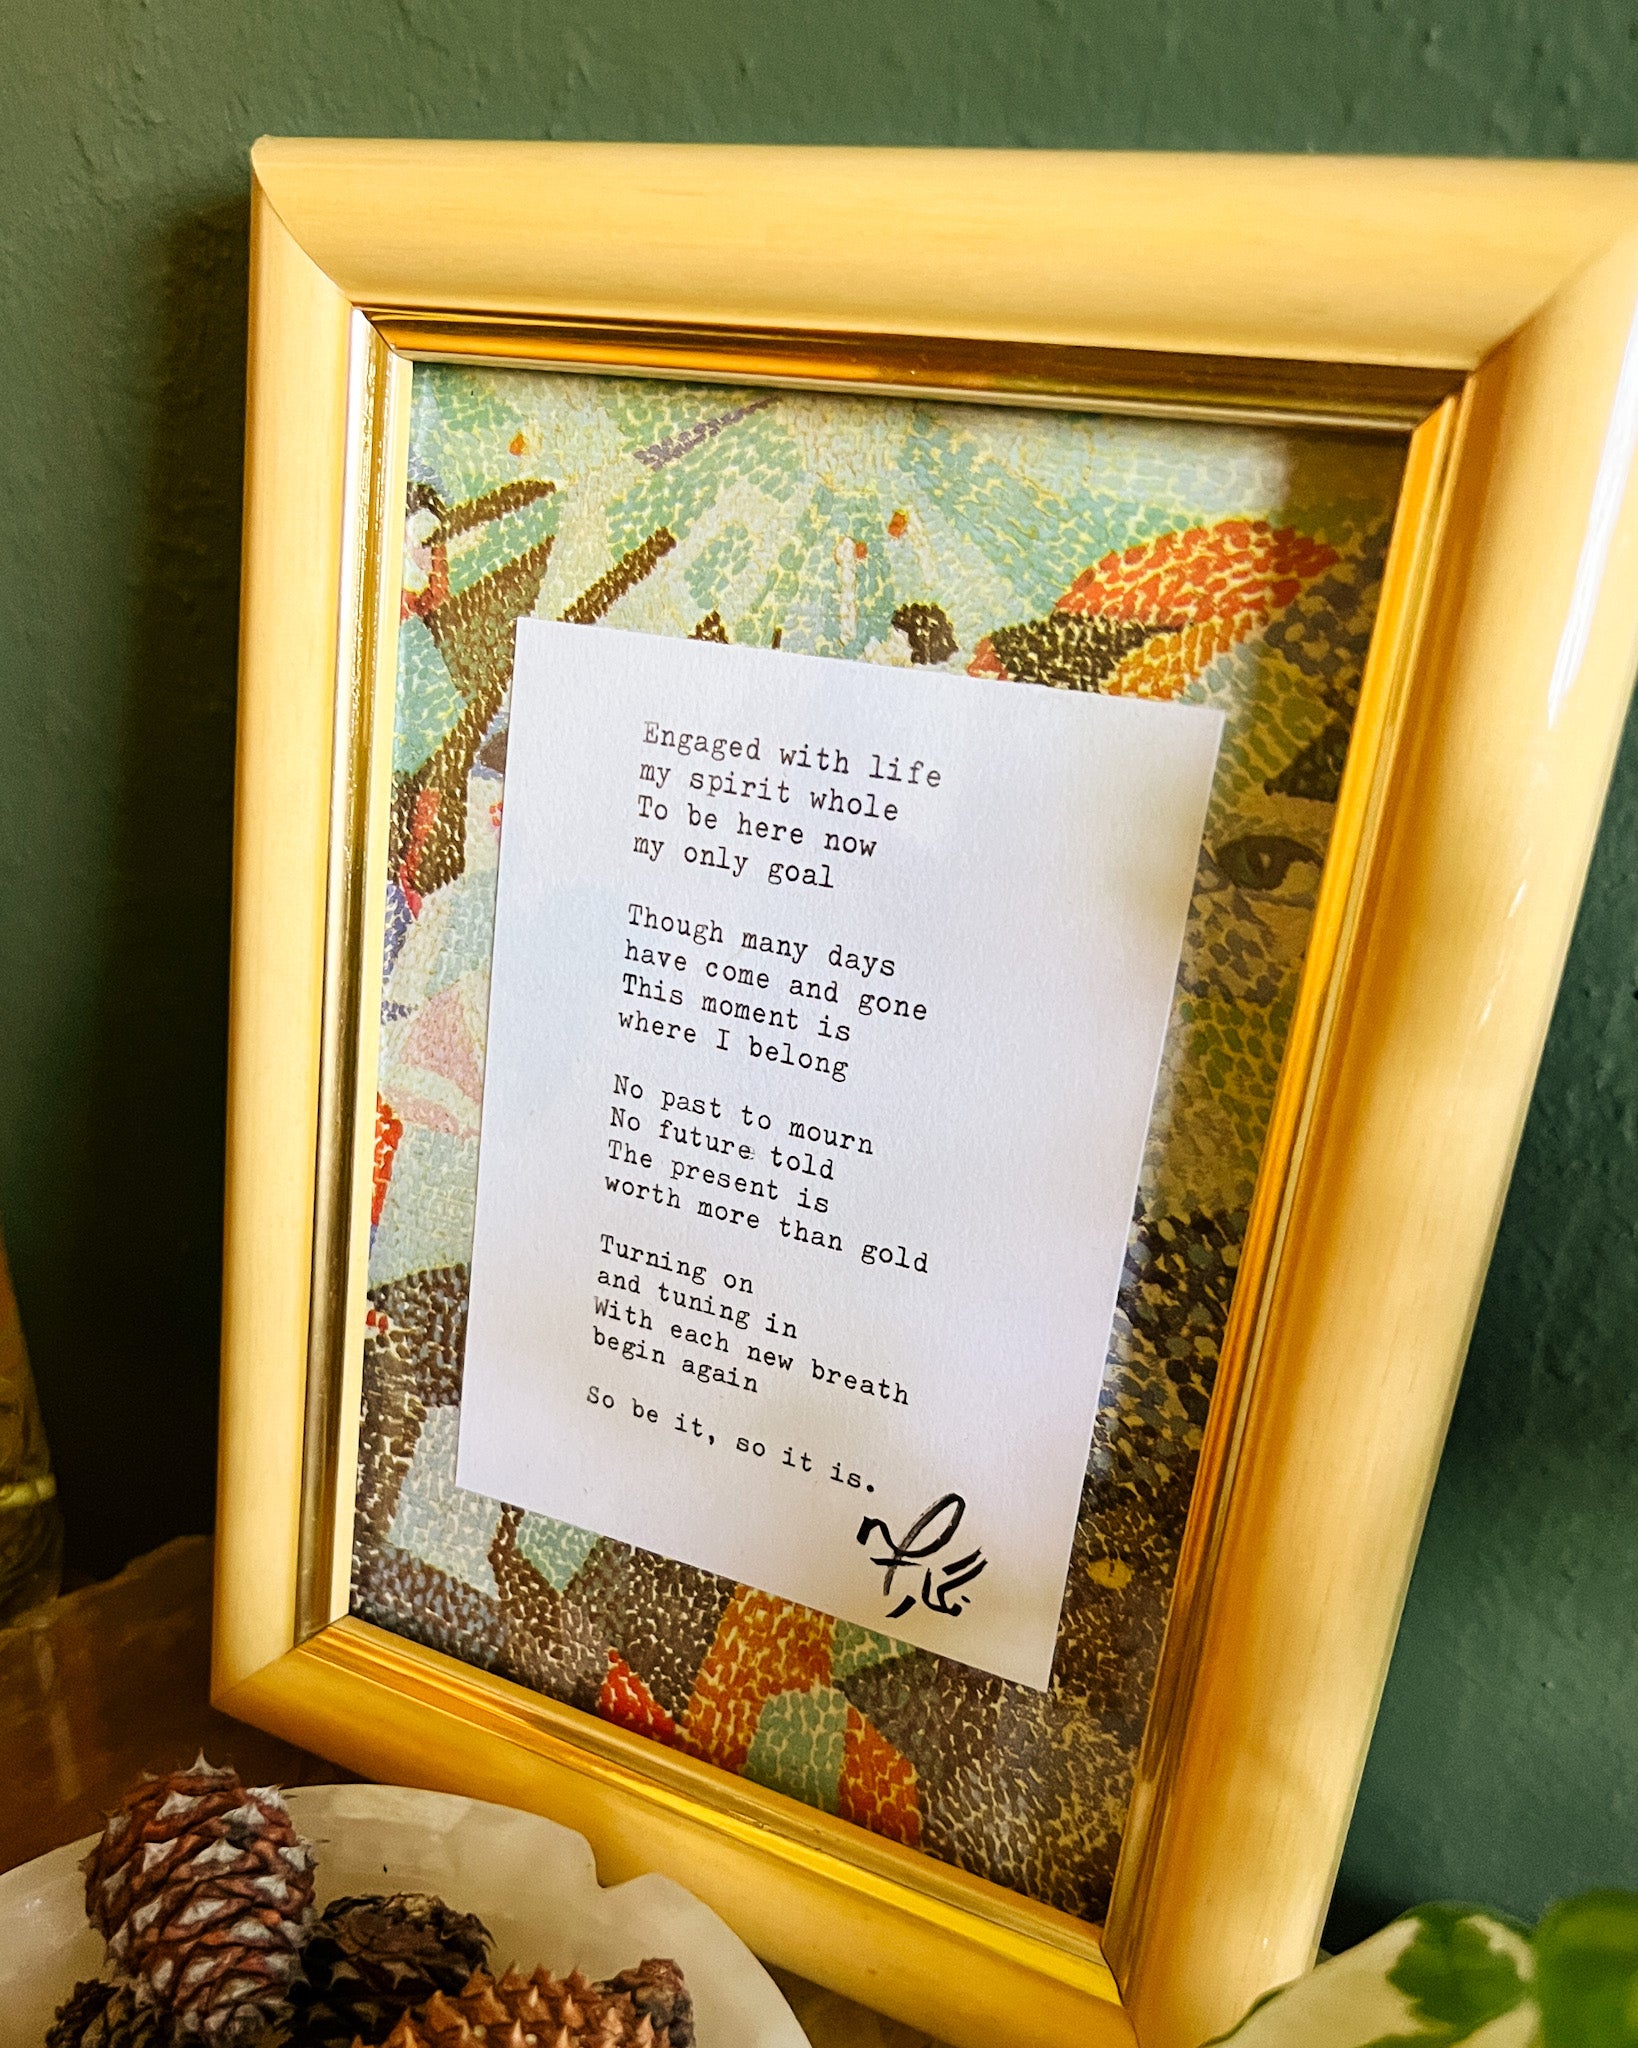 Engaged with life
my spirit whole
To be here now
my only goal
Though many days
have come and gone
This moment is
where I belong
No past to mourn
No future told
The present is
worth more than gold
Turning on
and tuning in
With each new breath
begin again
So be it, so it is.